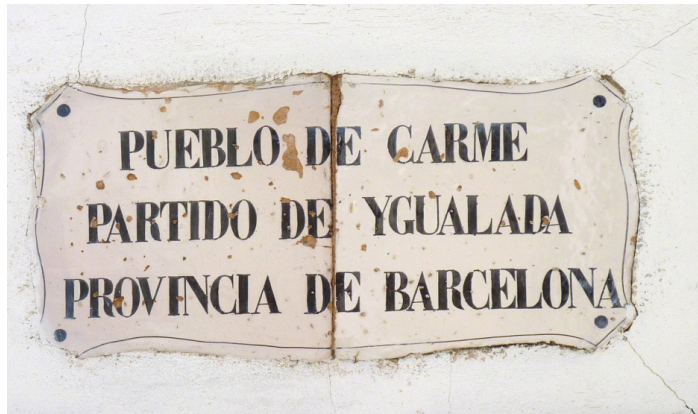 PUEBLO DE CARME
PARTIDO DE YGUALADA
PROVINCIA DE BARCELONA